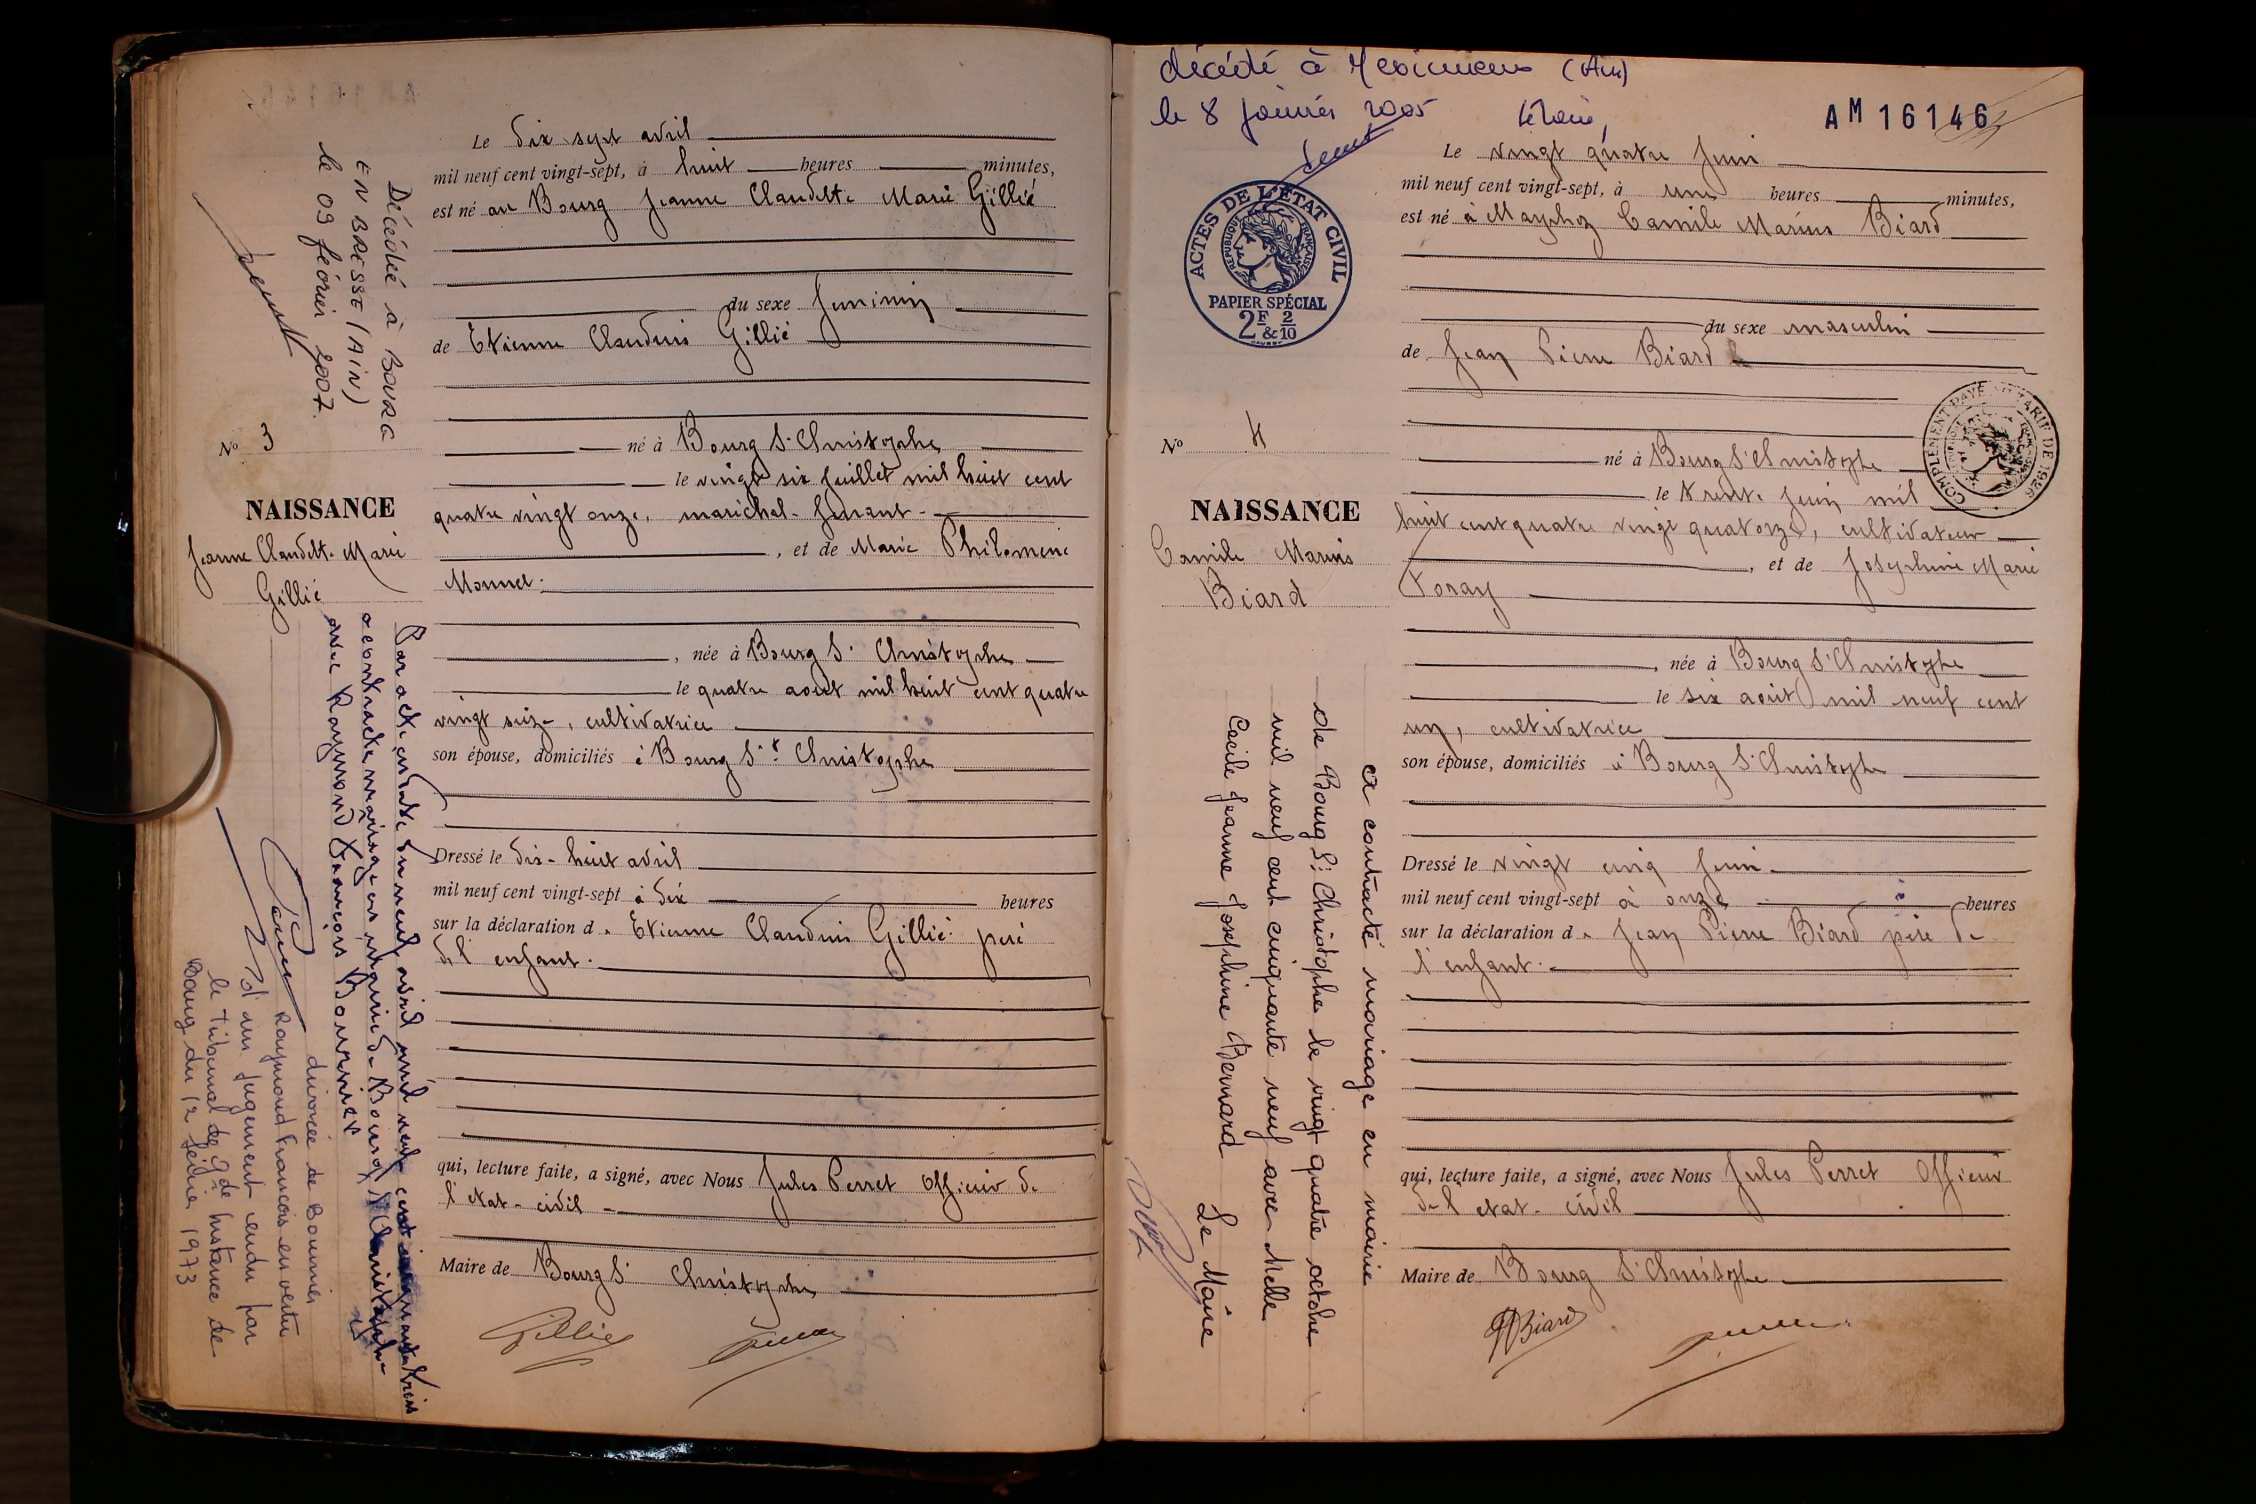 Le dix sept avril
mil neuf cent vingt-sept, à huit heures minutes,
est né au Bourg Jeanne Claudette Marie Gillié
du sexe féminin
de Etienne Claudius Gillié
né à Bourg St Christophe
le vingt six juillet mil huit cent
quatre vingt onze, maréchal-ferrant
, et de Marie Philomène
Monnet
, née à Bourg St Christophe
le quatre août mil huit cent quatre
vingt seize, cultivatrice
son épouse, domiciliés à Bourg St Christophe
Dressé le dix-huit avril
mil neuf cent vingt-sept à dix heures
sur la déclaration de Etienne Claudius Gillié père
de l'enfant.
qui, lecture faite, a signé, avec Nous Jules Perret Officier de
l'etat-civil
Maire de Bourg St Christophe
Gillié
Décédée à BOURG
EN BRESSE (AIN)
le 09 février 2007.
No 3
NAISSANCE
Jeanne Claudette Marie
Gillié
Par acte en date du neuf avril mil neuf cent
a contracté mariage en mairie de Bourg St Christophe
avec Raymond François Bournier
divorcée de Bournier
Raymond François en vertu
d'un jugement rendu par
le tribunal de Gde Instance de
Bourg du 12 février 1973
décédé à Meximieux (Ain)
le 8 janvier 2005
le Maire,
AM 16146
ACTES DE L'ÉTAT CIVIL
RÉPUBLIQUE FRANÇAISE
PAPIER SPÉCIAL
2F & 2/10
Le vingt quatre juin
mil neuf cent vingt-sept, à une heures minutes,
est né à Camille Marius Biard
du sexe masculin
de Jean Pierre Biard
né à Bourg St Christophe
COMPLÉMENT PAYÉ TARIF DE 1926
le trente juin mil
huit cent quatre vingt quatorze, cultivateur
, et de Joséphine Marie
Foray
, née à Bourg St Christophe
le six août mil neuf cent
un, cultivatrice
son épouse, domiciliés à Bourg St Christophe
Dressé le vingt cinq juin
mil neuf cent vingt-sept à onze heures
sur la déclaration de Jean Pierre Biard père de
l'enfant.
qui, lecture faite, a signé, avec Nous Jules Perret Officier
de l'etat-civil
Maire de Bourg St Christophe
Biard
No 4
NAISSANCE
Camille Marius
Biard
a contracté mariage en mairie
de Bourg St Christophe le vingt quatre octobre
mil neuf cent cinquante neuf avec Melle
Cecile Jeanne Josephine Bernard
Le Maire